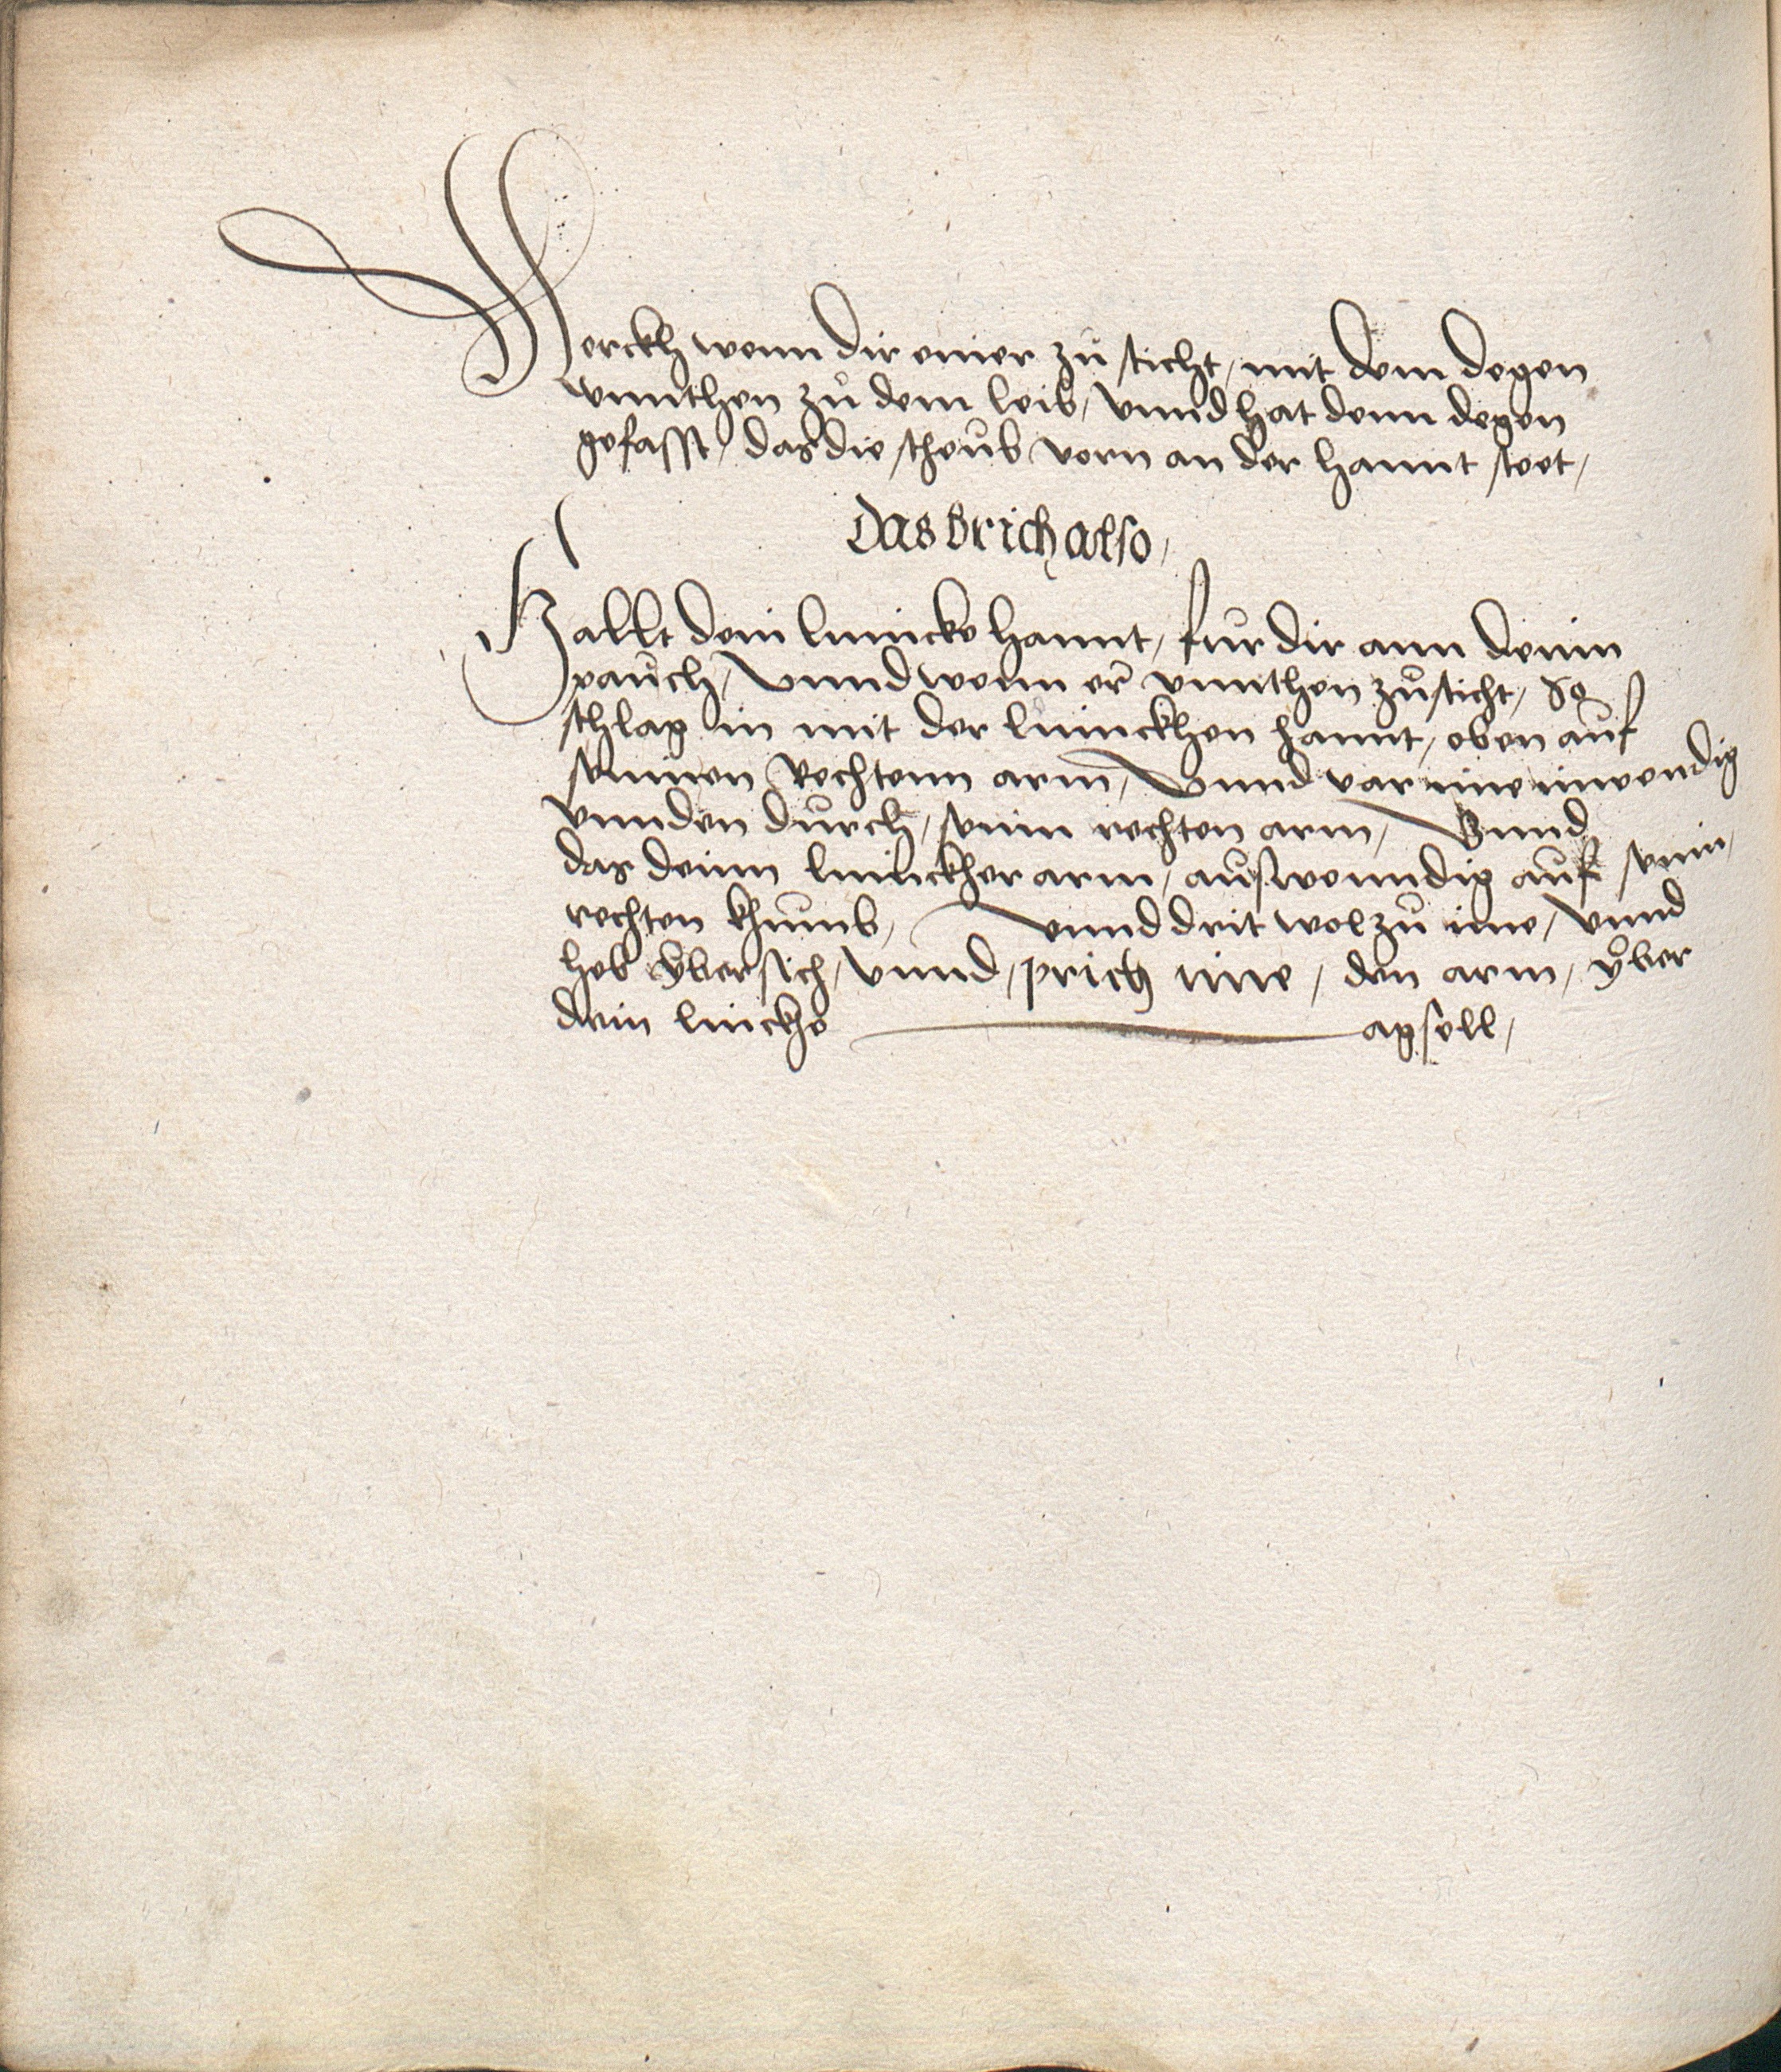 Merckh wenn dir einer zů sticht, mit dem degen
vnnthen zů dem leib, vnnd hat denn degen
gefasst, das die scheub vorn an der hannt steet,
Das brich also,
Hallt dein linncke hannt, fur dir ann deinn
pauch, Vnnd wenn er vnnthen zůsticht, so
schlag in mit der linnckhen hannt, oben auf
seinnen Rechtenn arm, Vnnd var ime inwendig
vnnden durch, seinn rechten arm, Vnnd
das deinn linnckher arm, auswenndig auf seinn,
rechten khumb, vnnd drit wol zů ime, vnnd
heb vber sich, vnnd, prich ime, den arm, vber
dein linckhe agsell,